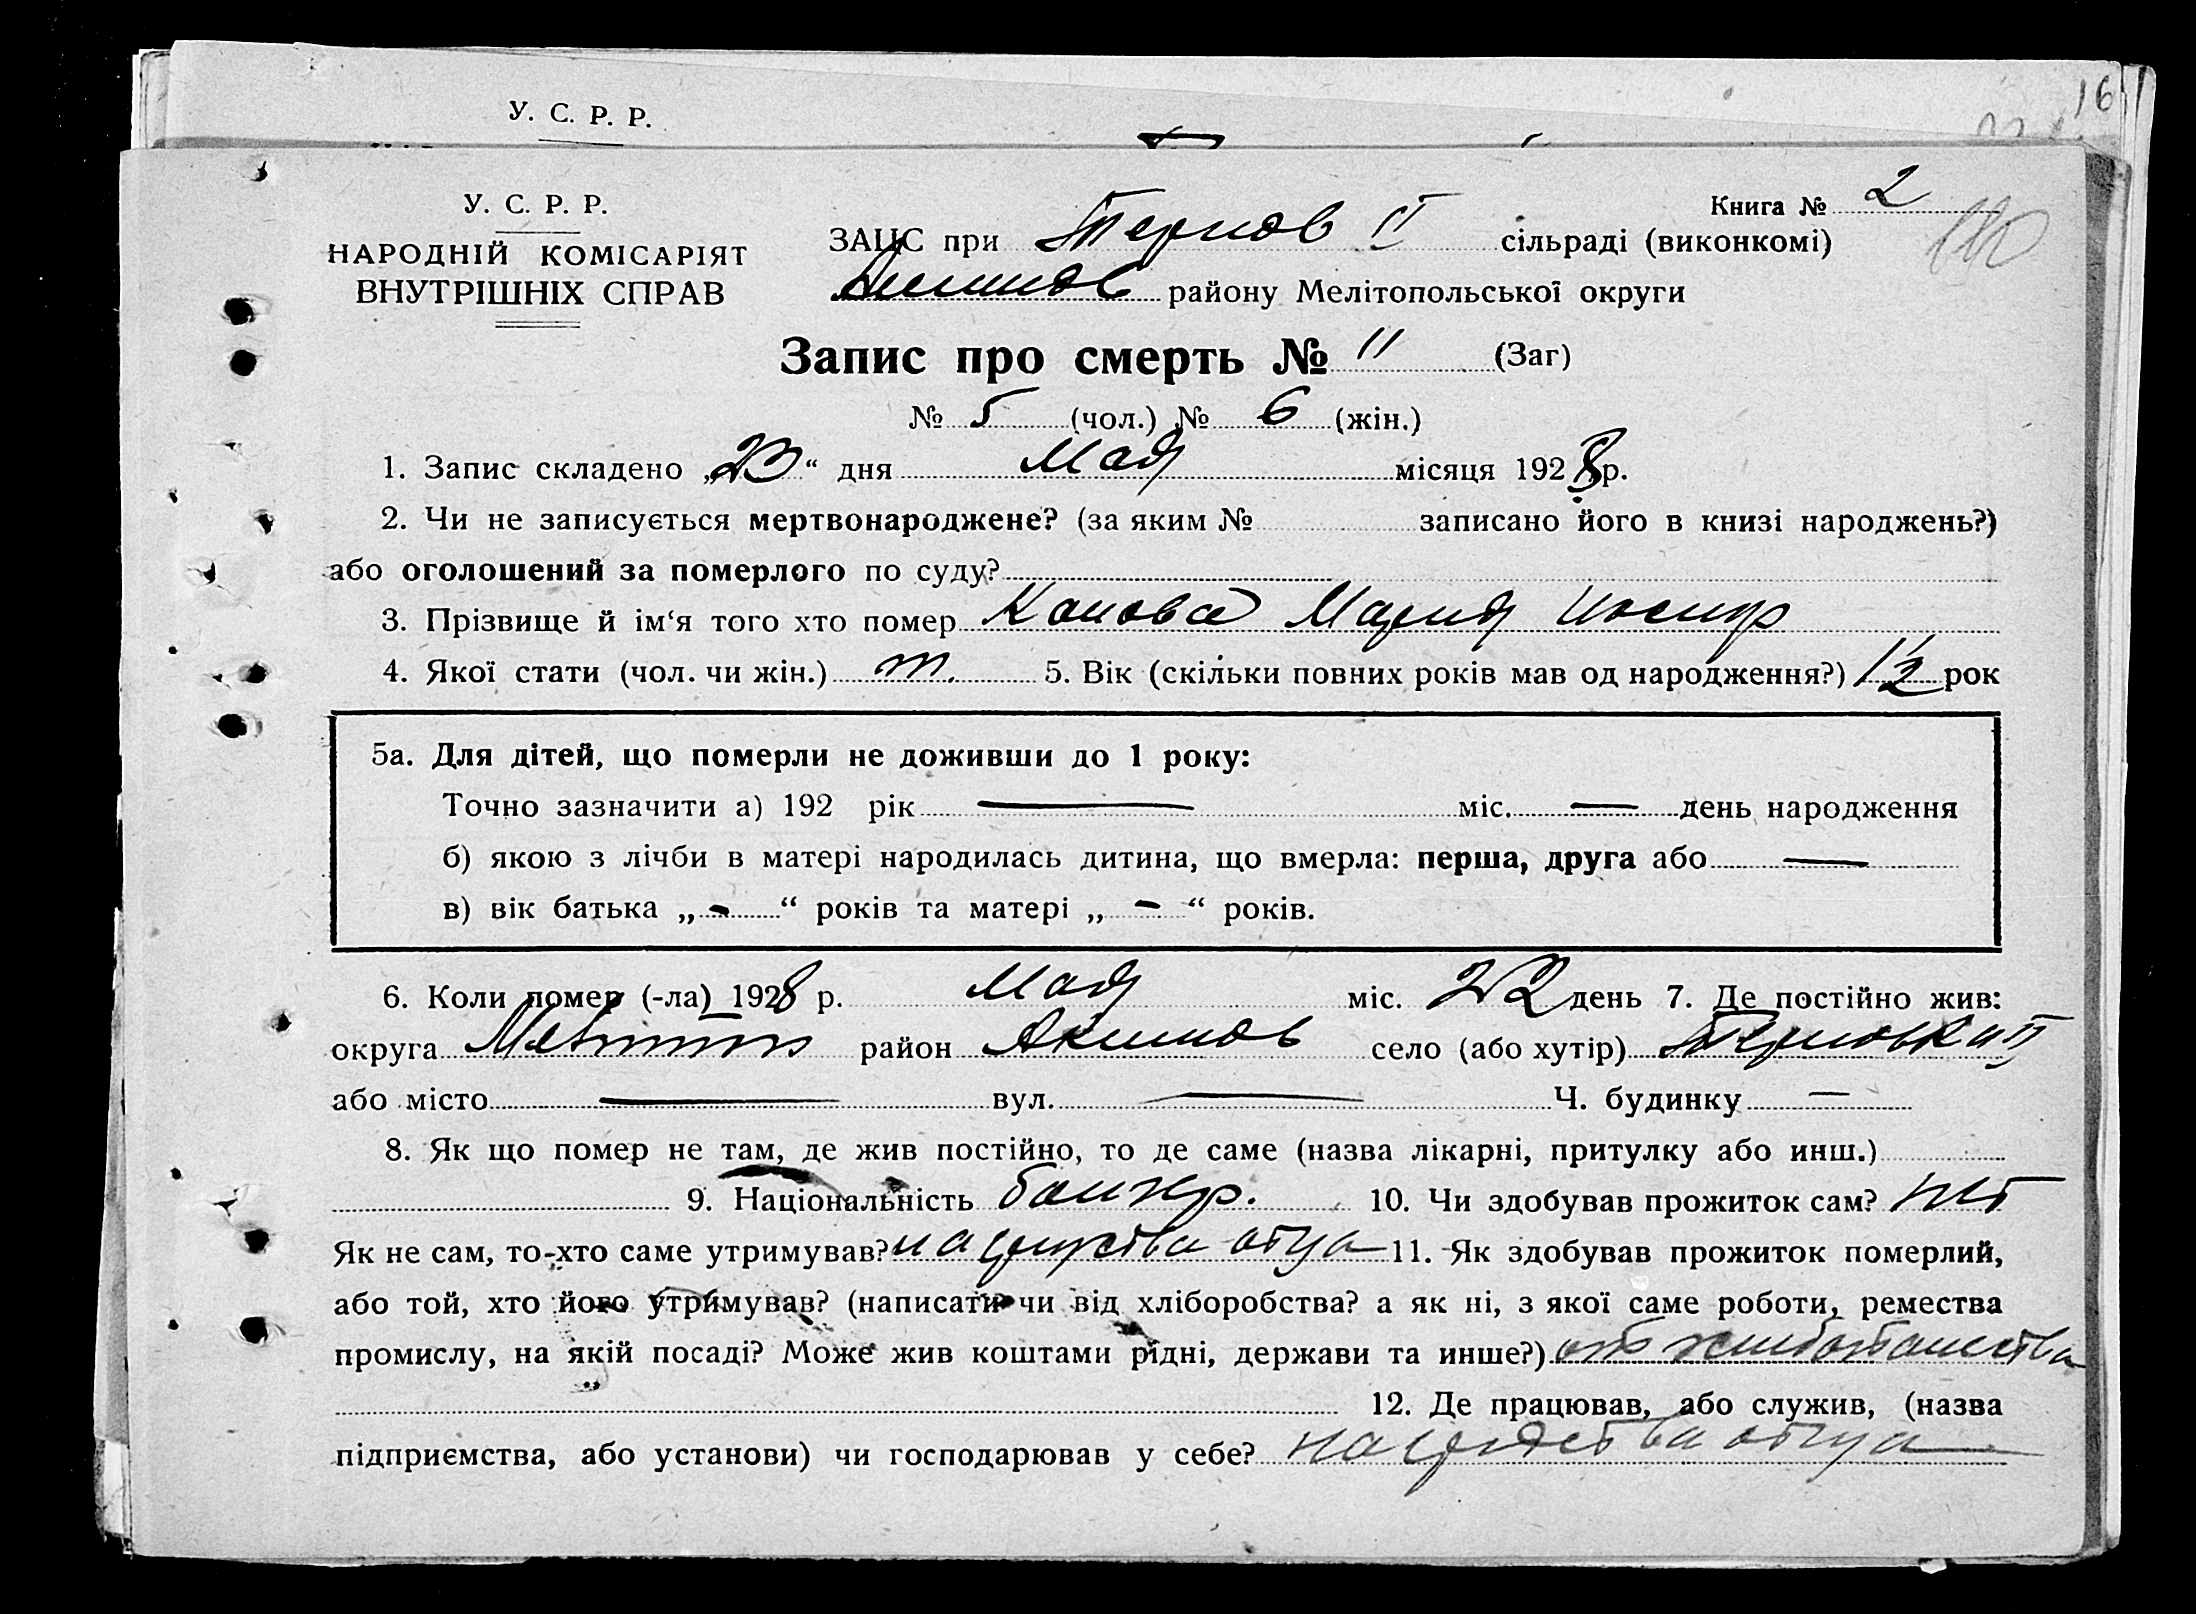 16
У. С. Р. Р.
У. С. Р. Р.
НАРОДНІЙ КОМІСАРІЯТ
ВНУТРІШНІХ СПРАВ
Книга № 2
ЗАЦС при Тернов II сільраді (виконкомі)
Акимов району Мелітопольської округи
Запис про смерть № 11 (Заг)
№ 5 (чол.) № 6 (жін.)
1. Запис складено „23“ дня Мая місяця 1928 р.
2. Чи не записується мертвонароджене? (за яким № записано його в книзі народжень?)
або оголошений за померлого по суду?
3. Прізвище й ім‘я того хто помер Мария
4. Якої стати (чол. чи жін.) 5. Вік (скільки повних років мав од народження?) 1½ рок
5а. Для дітей, що померли не доживши до 1 року:
Точно зазначити а) 192 рік — міс. — день народження
б) якою з лічби в матері народилась дитина, що вмерла: перша, друга або —
в) вік батька „ - “ років та матері „ - “ років.
6. Коли помер (-ла) 1928 р. Мая міс. 22 день 7. Де постійно жив:
округа район Акимов село (або хутір) Терновка II
або місто — вул. — Ч. будинку —
8. Як що помер не там, де жив постійно, то де саме (назва лікарні, притулку або инш.)
9. Національність болгар. 10. Чи здобував прожиток сам? нет
Як не сам, то-хто саме утримував? на средства отца 11. Як здобував прожиток померлий,
або той, хто його утримував? (написати чи від хліборобства? а як ні, з якої саме роботи, ремества
промислу, на якій посаді? Може жив коштами рідні, держави та инше?) от хлебопашества
12. Де працював, або служив, (назва
підприємства, або установи) чи господарював у себе? на средства отца